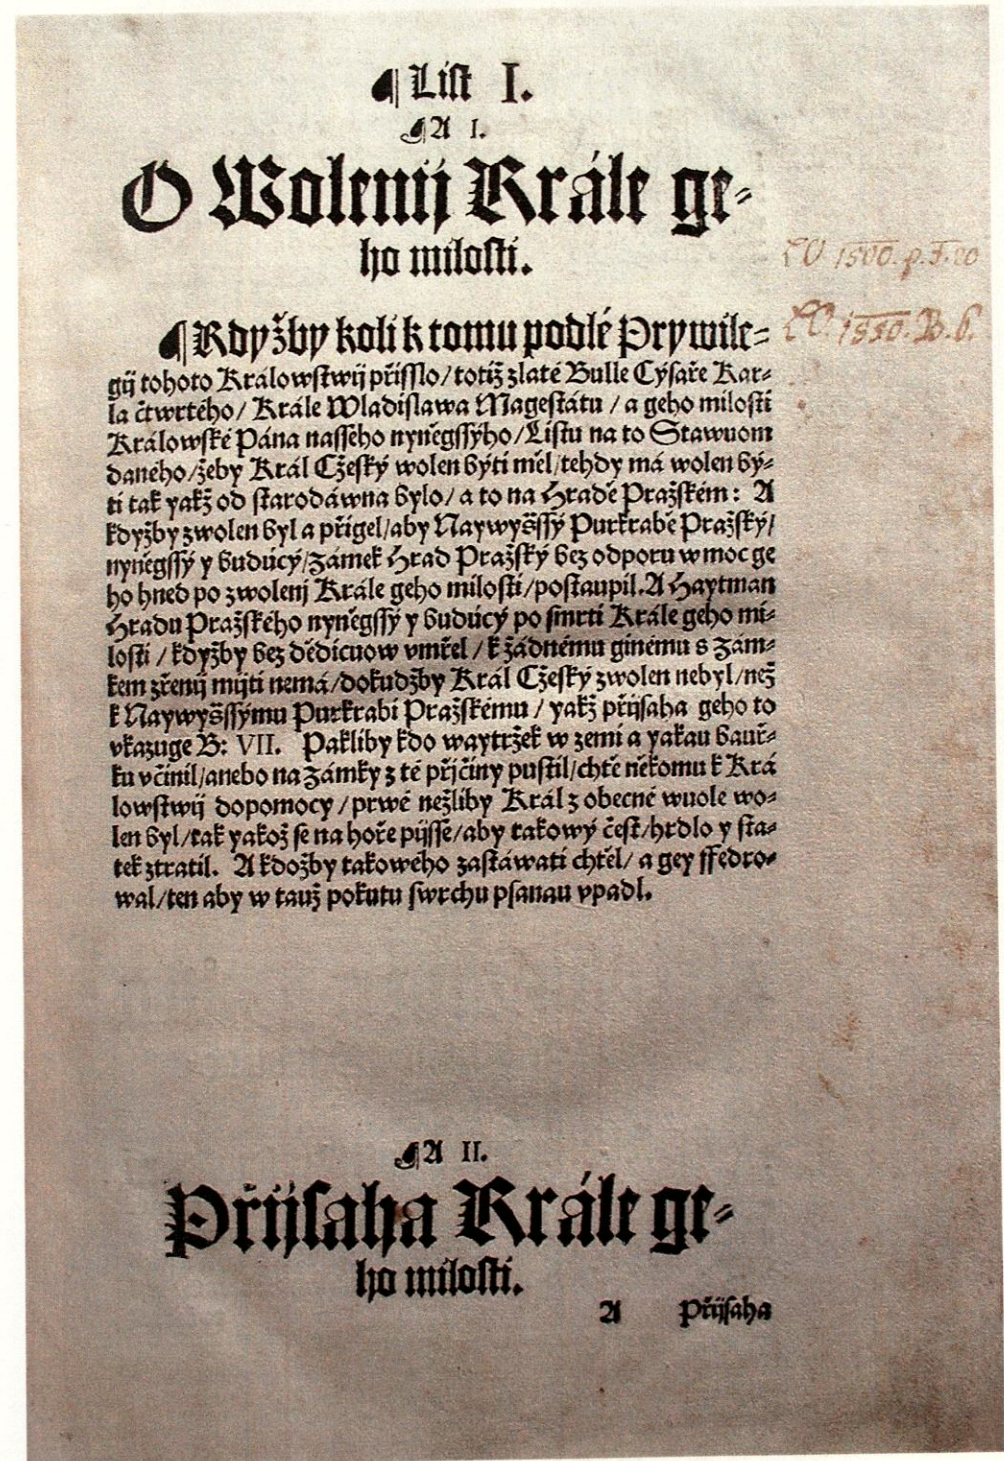 ¶ List I.
¶ A I.
O Wolenij Krále ge-
ho milosti.
¶ Kdyžby koli k tomu podlé Prywile-
gij tohoto Kralowstwij přisslo/ totiž zlaté Bulle Cýsaře Kar-
la čtwrtého/ Krále Wladislawa Magestátu / a geho milosti
Králowské Pána nasseho nyněgssýho/ Listu na to Stawuom
daného/ žeby Král Cžeský wolen býti měl/ tehdy má wolen bý-
ti tak yakž od starodáwna bylo/ a to na Hradě Pražském: A
kdyžby zwolen byl a přigel/ aby Naywyšssý Purkrabě Pražský/
nyněgssý y budúcý/ Zámek Hrad Pražský bez odporu w moc ge
ho hned po zwolenj Krále geho milosti/ postaupil. A Haytman
Hradu Pražského nyněgssý y budúcý po smrti Krále geho mi-
losti / kdyžby bez dědicuow vmřel / k žádnému ginému s Zám-
kem zřenij mijti nemá/ dokudžby Král Cžeský zwolen nebyl/ než
k Naywyšssýmu Purkrabi Pražskému / yakž přijsaha geho to
vkazuge B: VII. Pakliby kdo waytržek w zemi a yakau bauř-
ku včinil/ anebo na Zámky z té přjčiny pustil/ chtě někomu k Krá
lowstwij dopomocy / prwé nežliby Král z obecné wuole wo-
len byl/ tak yakož se na hoře pijsse/ aby takowý čest/ hrdlo y sta-
tek ztratil. A kdožby takowého zastáwati chtěl/ a gey ssedro-
wal/ ten aby w tauž pokutu swrchu psanau vpadl.
¶ A II.
Přijsaha Krále ge-
ho milosti.
A Přijsaha
1500. p. J. 20
1550. B. 6.